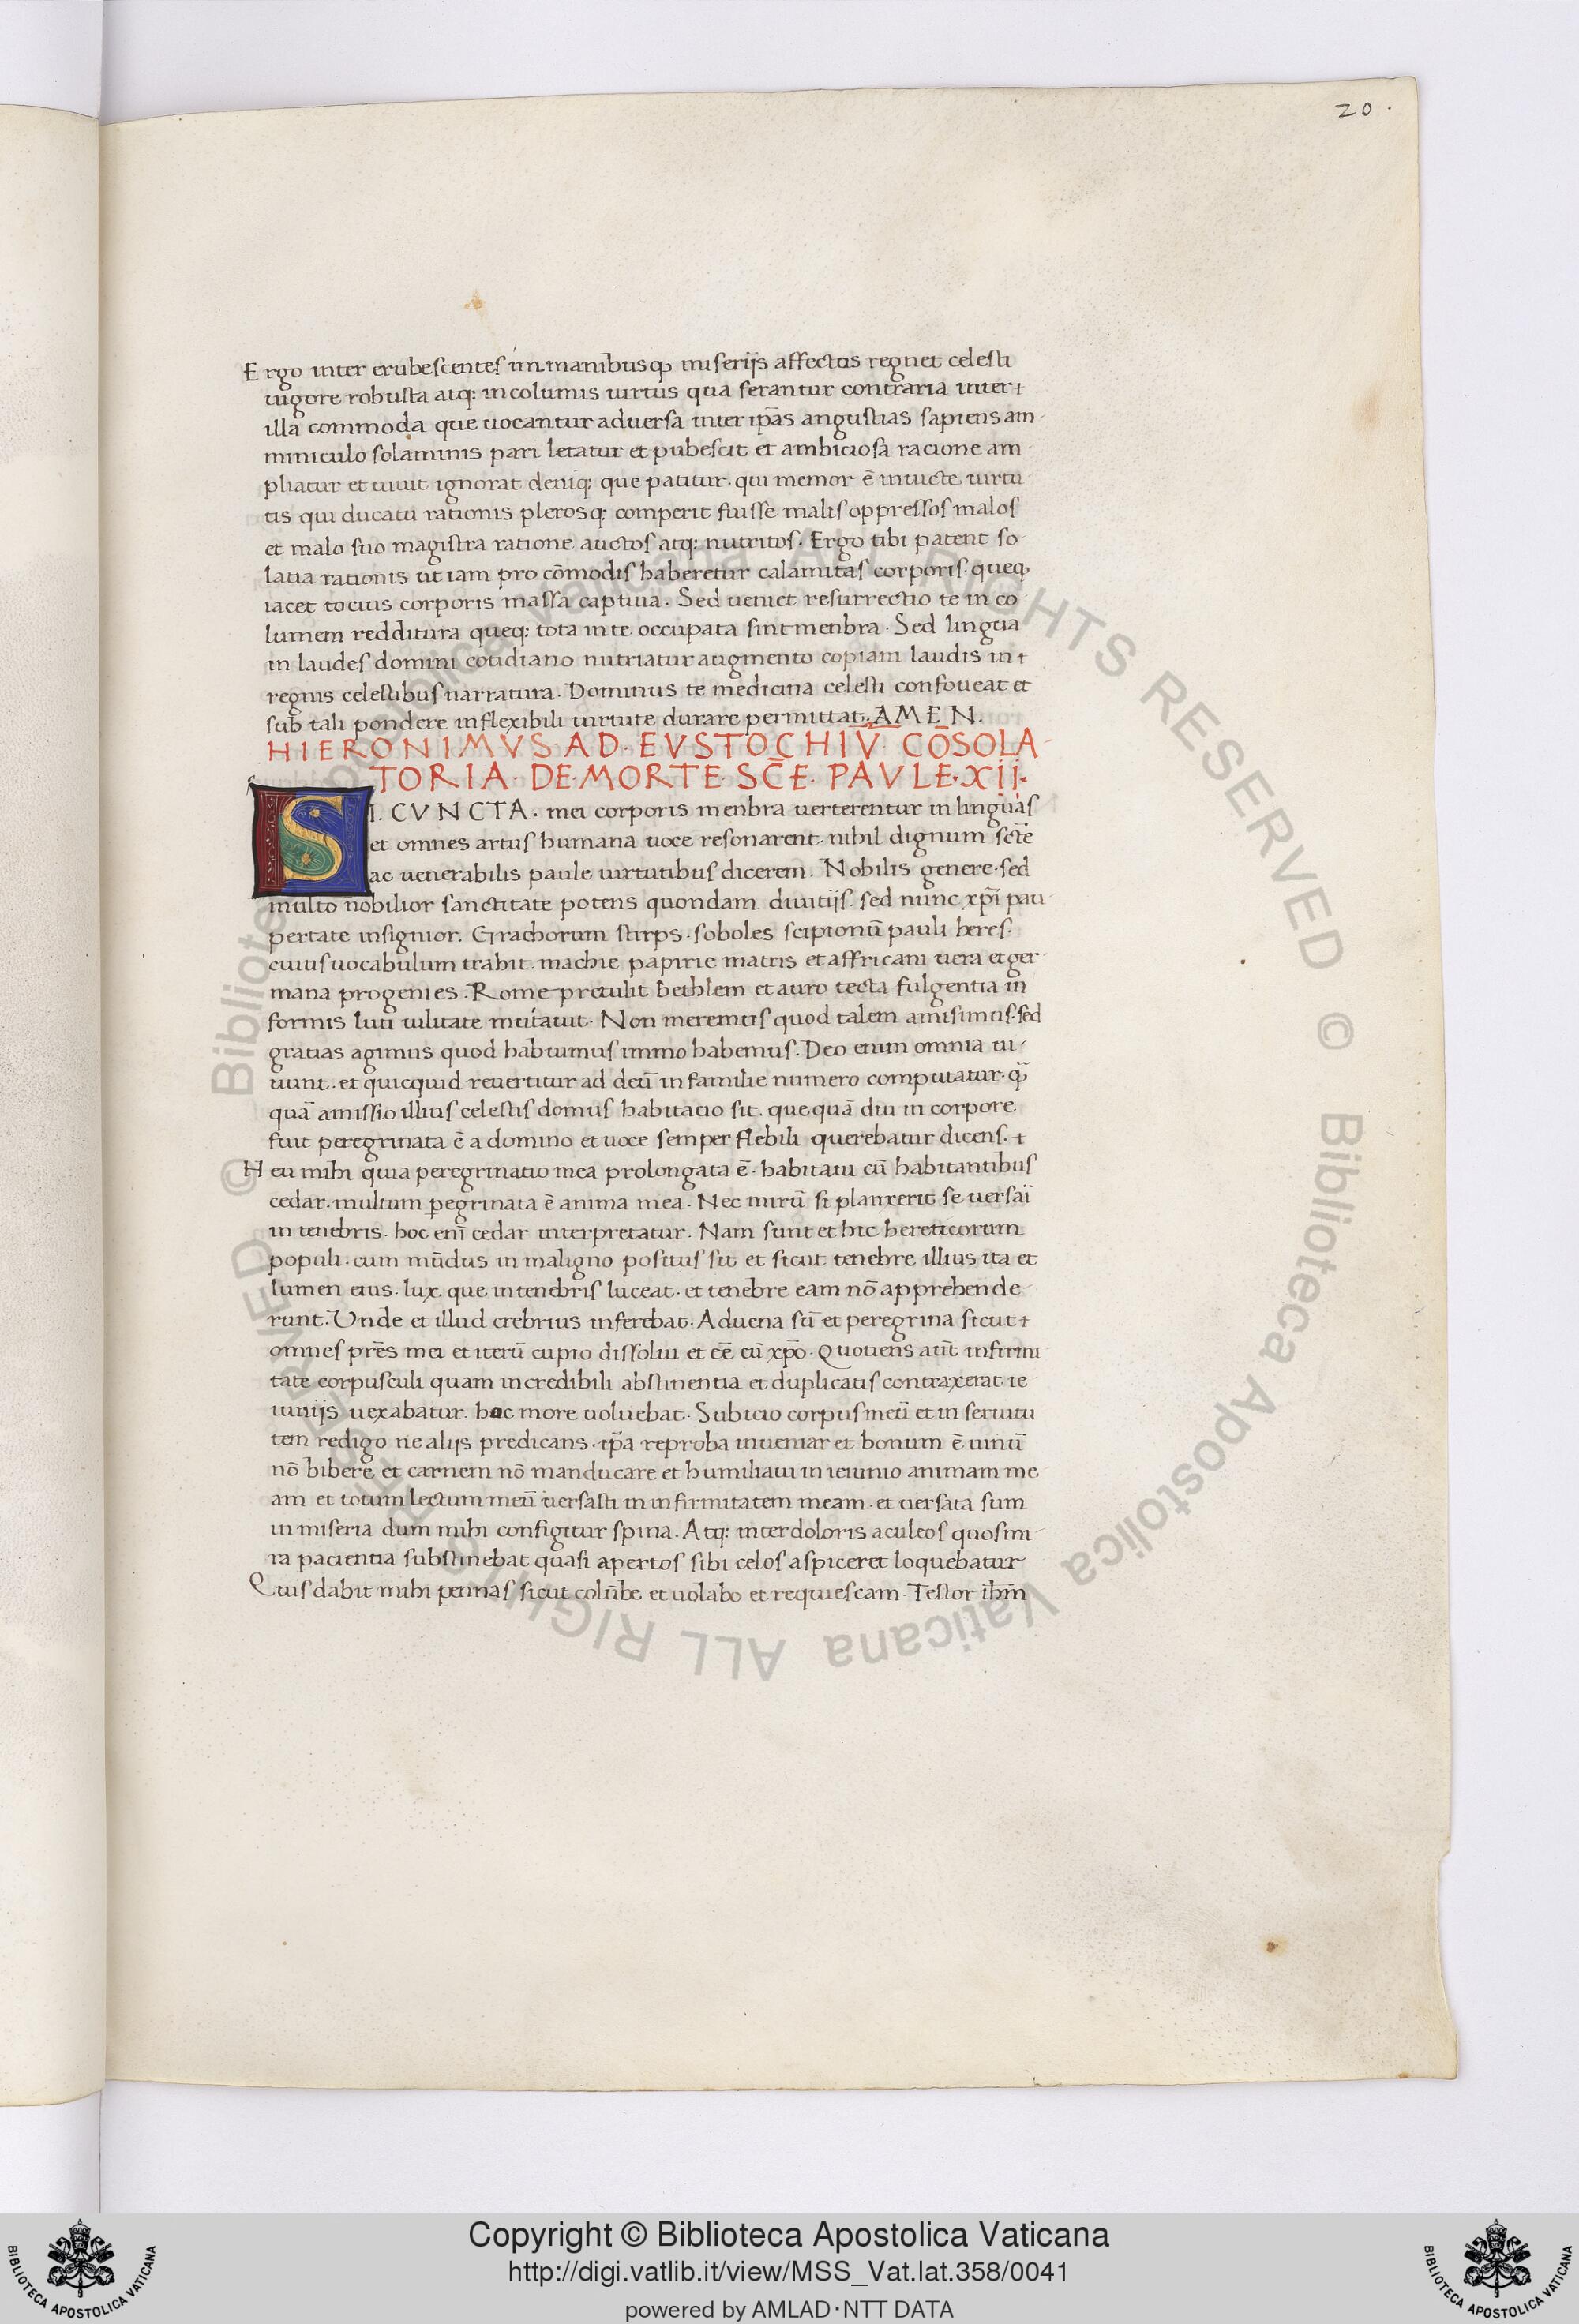 20.
Ergo inter erubescentes immanibusqꝫ miserijs affectus regnet celesti
uigore robusta atqꝫ incolumis uirtus qua ferantur contraria inter
illa commoda que uocantur aduersa inter ip̄as angustias sapiens am-
miniculo solaminis pari letatur et pubescit et ambiciosa racione am
pliatur et uiuit ignorat deniqꝫ que patitur. qui memor ē inuicte uirtu
tis qui ducatu rationis plerosqꝫ comperit fuisse malis oppressos malos
et malo suo magistra ratione auctos atqꝫ nutritos. Ergo tibi patent so
latia rationis ut iam pro cōmodis haberetur calamitas corporis. queqꝫ
iacet tocius corporis massa captiua. Sed ueniet resurrectio te in co
lumem redditura queqꝫ tota in te occupata sint menbra. Sed lingua
in laudes domini cotidiano nutriatur augmento copiam laudis in
regnis celestibus narratura. Dominus te medicina celesti confoueat et
sub tali pondere inflexibili uirtute durare permittat. AMEN.
HIERONIMVS. AD. EVSTOCHIV̄. CŌSOLA-
TORIA. DE. MORTE. SC̄E. PAVLE. XII.
SI. CVNCTA. mei corporis menbra uerterentur in linguas
et omnes artus humana uoce resonarent. nihil dignum sc̄te
ac uenerabilis paule uirtutibus dicerem. Nobilis genere. sed
multo nobilior sanctitate potens quondam diuitijs. sed nunc xp̄i pau
pertate insignior. Grachorum stirps. soboles scipionū pauli heres.
cuius uocabulum trahit. machie papirie matris et affricani uera et ger-
mana progenies. Rome pretulit bethlem et auro tecta fulgentia in
formis luti uilitate mutauit. Non meremus quod talem amisimus. sed
gratias agimus quod habuimus immo habemus. Deo enim omnia ui-
uunt. et quicquid reuertitur ad deū in familie numero computatur. qꝫ
quā amissio illius celestis domus habitacio sit. que quā diu in corpore
fuit peregrinata ē a domino et uoce semper flebili querebatur dicens.
Heu mihi quia peregrinatio mea prolongata ē. habitaui cū habitantibus
cedar. multum pegrinata ē anima mea. Nec mirū si planxerit se uersari
in tenebris. hoc eni̅ cedar interpretatur. Nam sunt et hic hereticorum
populi. cum mūdus in maligno positus sit et sicut tenebre illius ita et
lumen eius. lux que in tenebris luceat. et tenebre eam nō apprehende
runt. Unde et illud crebrius inferebat. Aduena sū et peregrina sicut
omnes pr̄es mei et iterū cupio dissolui et eē cū xp̄o. Quotiens aūt infirmi
tate corpusculi quam incredibili abstinentia et duplicatis contraxerat ie
iunijs uexabatur. hoc more uoluebat. Subicio corpus meū et in seruitu
tem redigo ne alijs predicans. ip̄a reproba inueniar et bonum ē uinū
nō bibere et carnem nō manducare et humiliaui in ieiunio animam me
am et totum lectum meū uersasti in infirmitatem meam. et uersata sum
in miseria dum mihi configitur spina. Atqꝫ inter doloris aculeos quos mi-
ra pacientia substinebat quasi apertos sibi celos aspiceret loquebatur
Quis dabit mihi pennas sicut colūbe et uolabo et requiescam. Testor ihm̄
Copyright © Biblioteca Apostolica Vaticana
http://digi.vatlib.it/view/MSS_Vat.lat.358/0041
powered by AMLAD·NTT DATA
BIBLIOTECA APOSTOLICA VATICANA
BIBLIOTECA APOSTOLICA VATICANA
© Biblioteca Apostolica Vaticana ALL RIGHTS RESERVED © Biblioteca Apostolica Vaticana ALL RIGHTS RESERVED